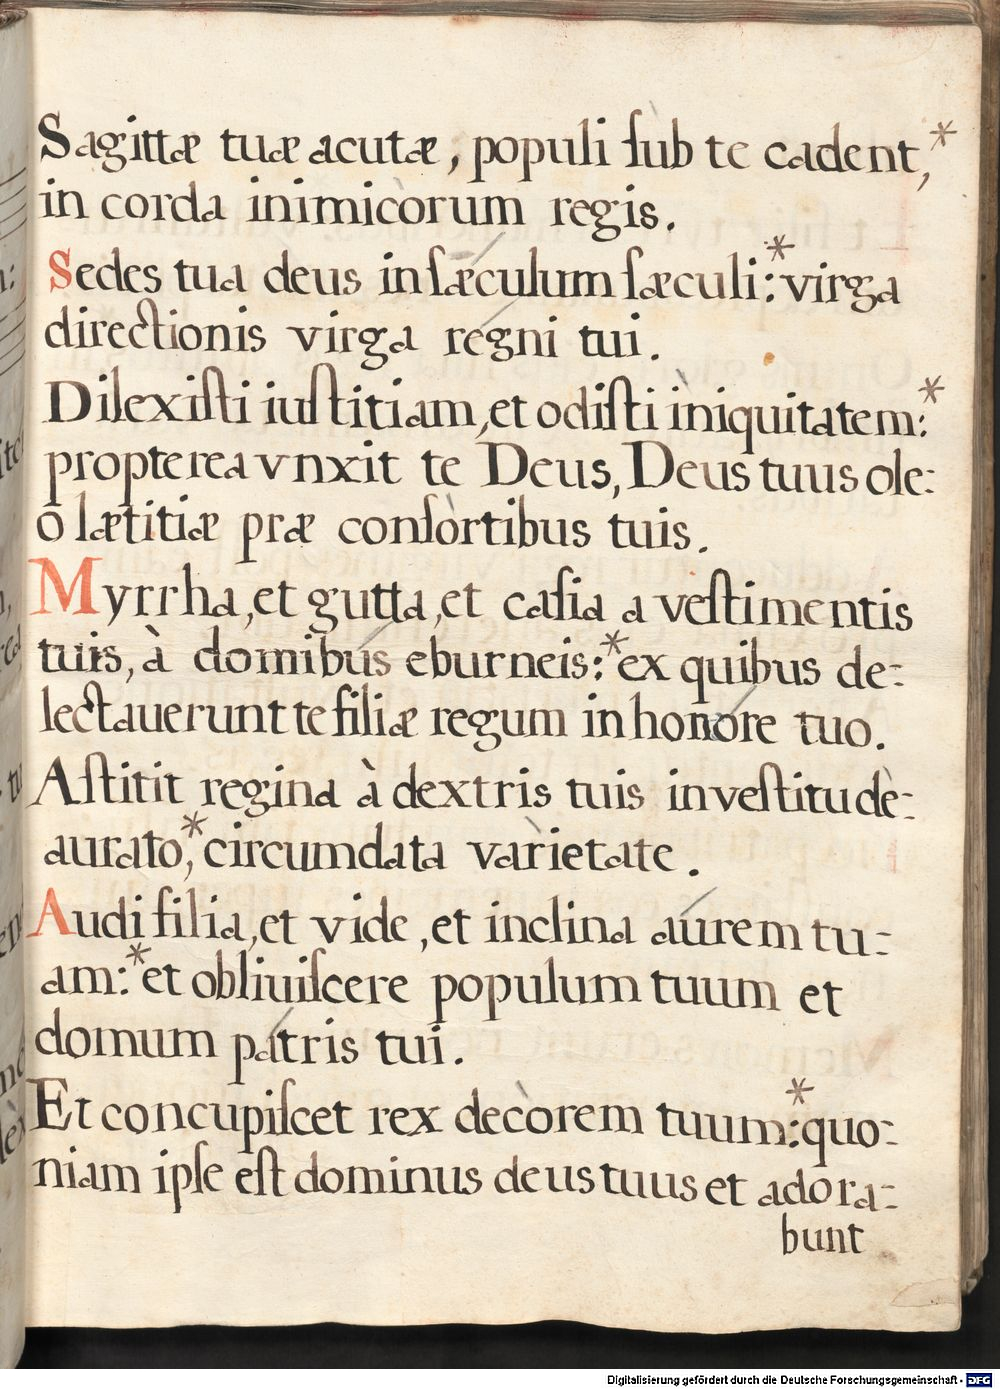 Sagittæ tuæ acutæ, populi ſub te cadent,*
in corda inimicòrum regis.
Sedes tua deus in ſǽculum ſæculi:* virga
directionis virga régni tui.
Dilexiſti iuſtitiam, et odiſti inìquitatem:*
propterea vnxit te Deus, Deus tuus ole:
o lætitiæ præ conſòrtibus tuis.
Myrrha, et gutta, et caſia a veſtimentis
tuis, à domibús eburneis:* ex quibus de:
lectauerunt te filiæ regum in honóre tuo.
Aſtitit regina à dextris tuis in veſtitu dè:
aurato,* circumdata vàrietate.
Audi filia, et vide, et inclina áurem tu:
am:* et obliuiſcere populum tuum et
domum pátris tui.
Et concupiſcet rex decòrem tuum:* quo:
niam ipſe eſt dominus deus tuus et adora:
bunt
Digitalisierung gefördert durch die Deutsche Forschungsgemeinschaft - DFG